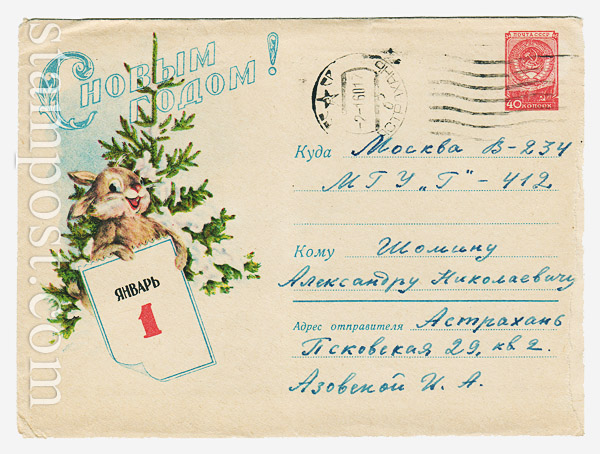 С НОВЫМ
ГОДОМ!
ПОЧТА СССР
40 КОПЕЕК
Куда Москва В-234
МГУ „Г"-412
Кому Шомину
Александру Николаевичу
Адрес отправителя Астрахань
Псковская 29, кв 2.
Азовской И. А.
ЯНВАРЬ
1
stampost.com
stampost.com